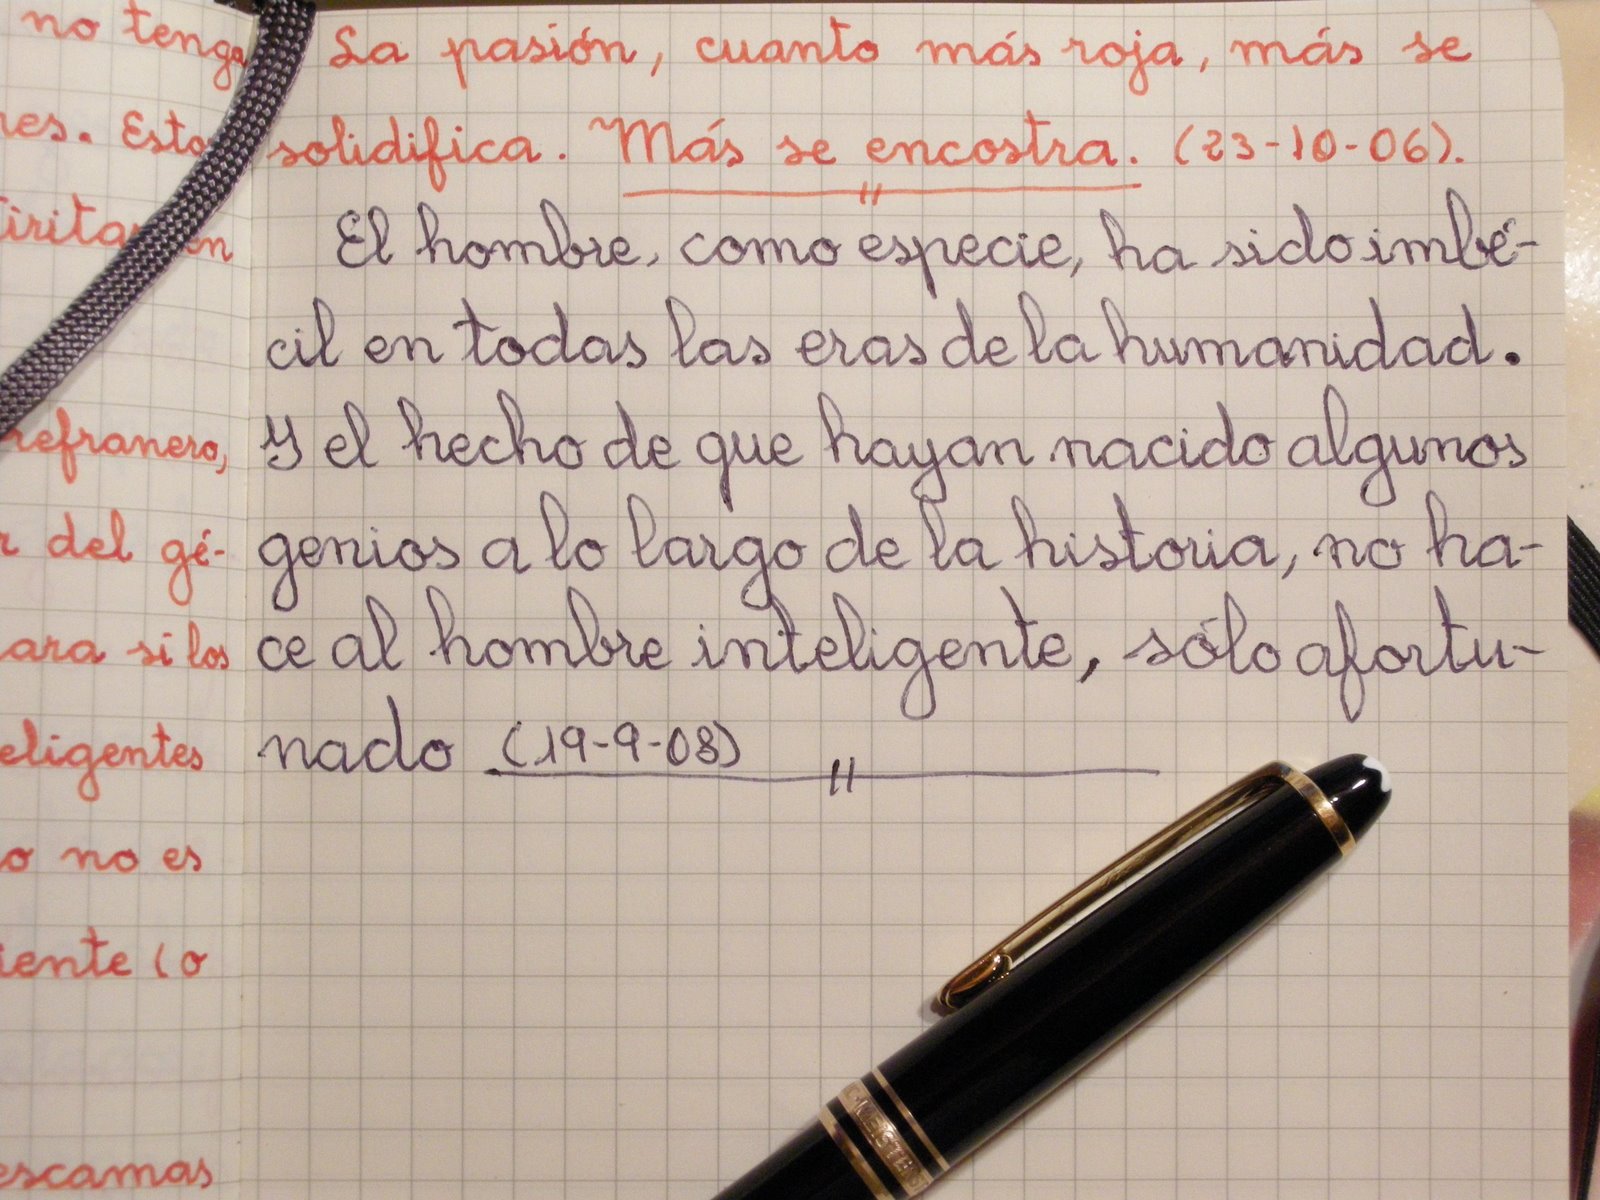 no tenga
res. Esto
tiritan en
refranero,
r del gé-
ara si los
eligentes
o no es
iente (o
escamas
La pasión, cuanto más roja, más se
solidifica. Más se encostra. (23-10-06).
El hombre, como especie, ha sido imbé-
cil en todas las eras de la humanidad.
Y el hecho de que hayan nacido algunos
genios a lo largo de la historia, no ha-
ce al hombre inteligente, sólo afortu-
nado (19-9-08)